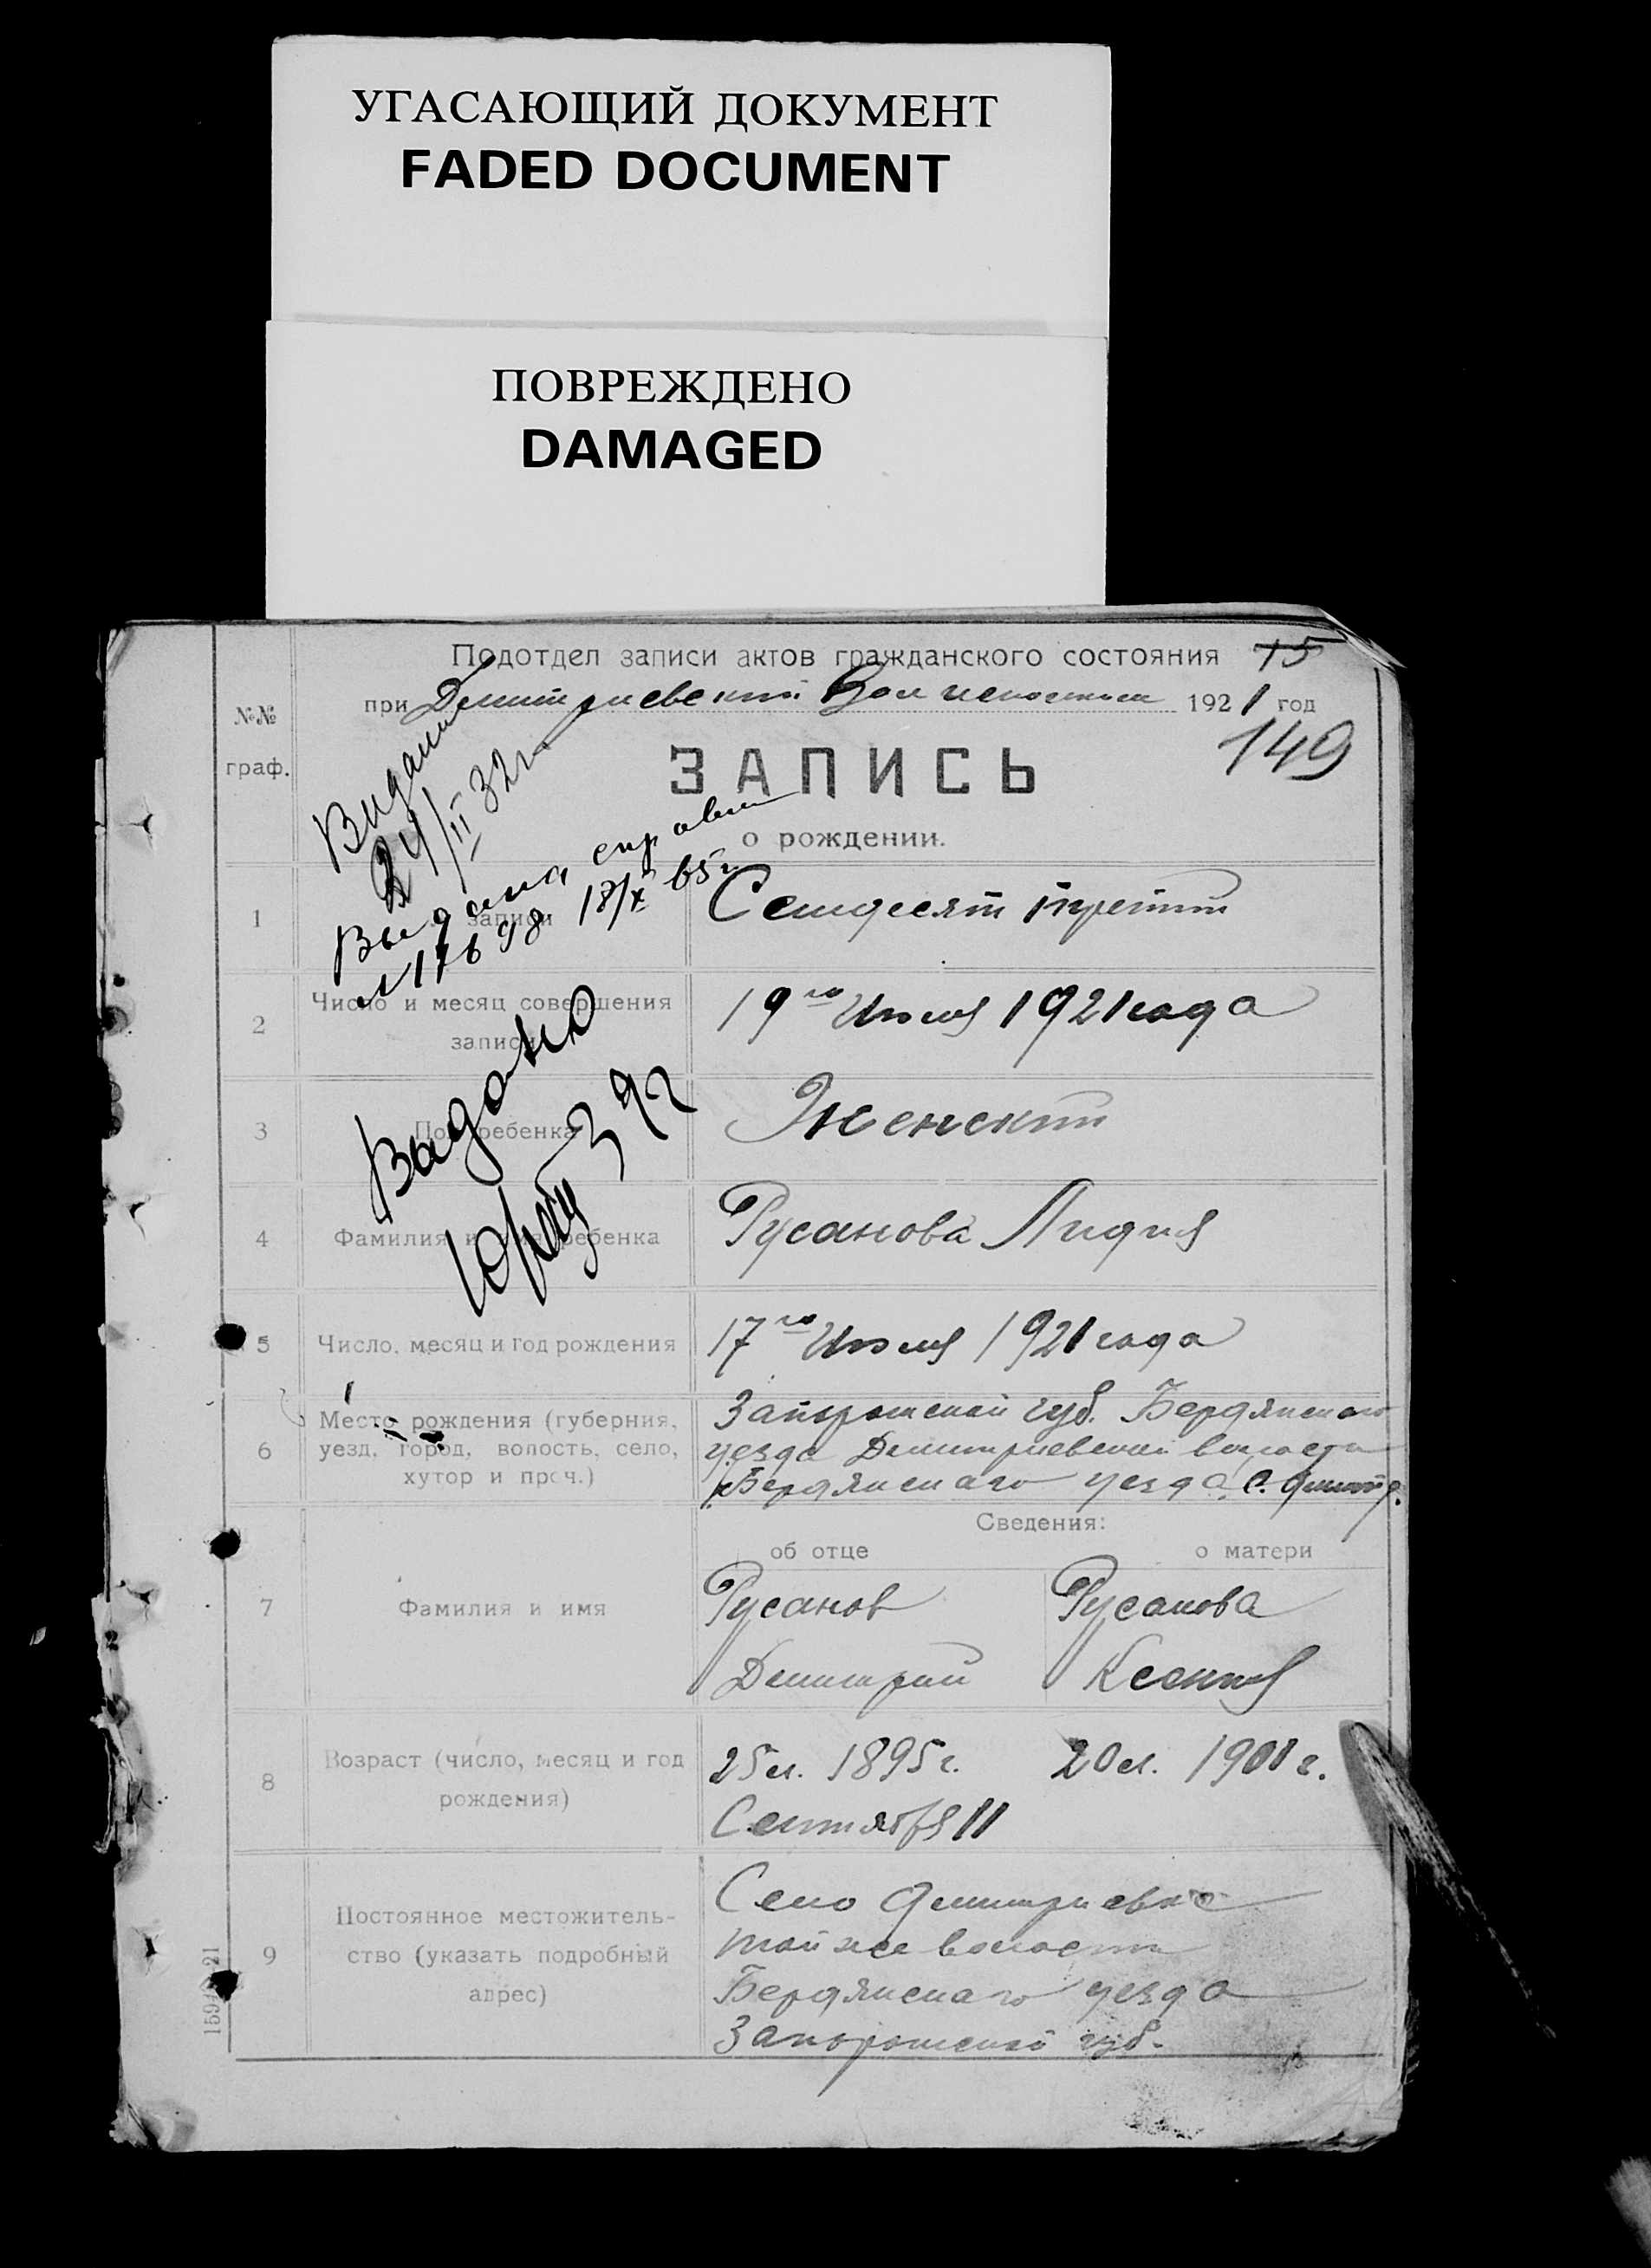 УГАСАЮЩИЙ ДОКУМЕНТ
FADED DOCUMENT
ПОВРЕЖДЕНО
DAMAGED
Подотдел записи актов гражданского состояния 15
при Димитриевской Вол 1921 год
149
№№
граф.
ЗАПИСЬ
о рождении.
Видани
24/II 32г
Выдана справка
N 17698 18/X 65г
1 записи Семдесят третий
2 Число и месяц совершения
записи
19го Июля 1921 года
Выдано
39г
3 Пол ребенка Женский
4 Фамилия и имя ребенка Русанова Лидия
5 Число, месяц и год рождения 17го Июля 1921 года
6 Место рождения (губерния,
уезд, город, волость, село,
хутор и проч.)
Запорожской губ. Бердянского
уезда Димитриевской волости
Бердянскаго уезда с. Димитр.
Сведения:
об отце о матери
7 Фамилия и имя
Русанов Русанова
Димитрий Ксения
8 Возраст (число, месяц и год
рождения)
25 л. 1895 г. 20 л. 1901 г.
Сентября 11
9 Постоянное местожитель-
ство (указать подробный
адрес)
Село Димитриевка
той же волости
Бердянскаго уезда
Запорожской губ.